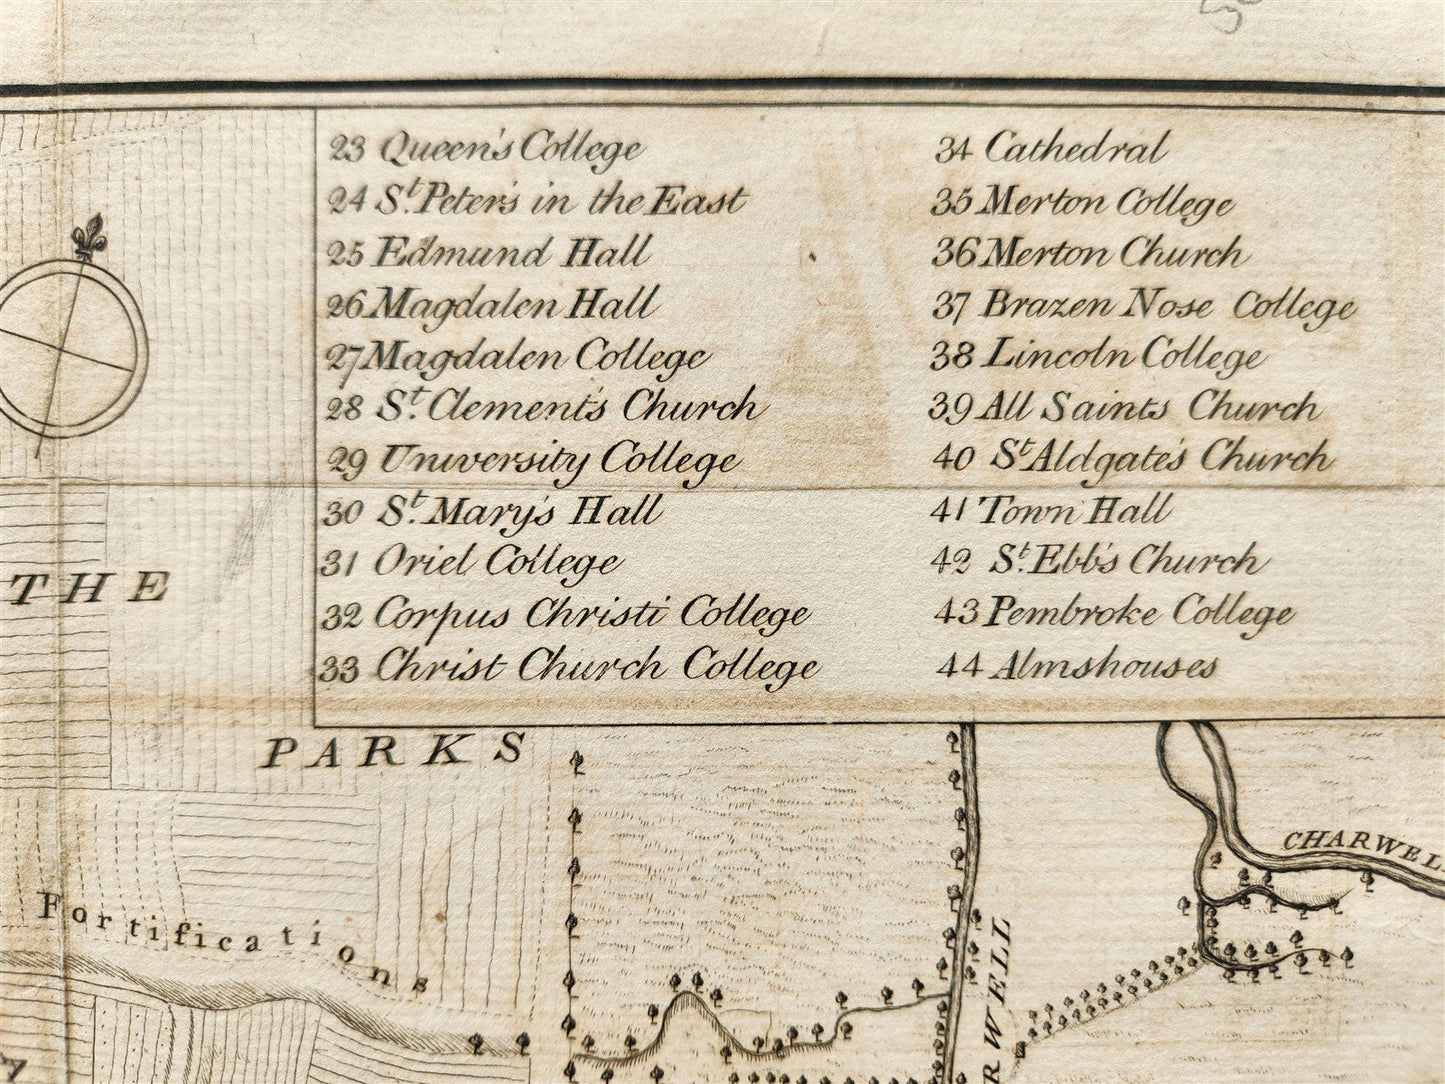 23 Queen's College
24 St. Peter's in the East
25 Edmund Hall
26 Magdalen Hall
27 Magdalen College
28 St. Clement's Church
29 University College
30 St. Mary's Hall
31 Oriel College
32 Corpus Christi College
33 Christ Church College
34 Cathedral
35 Merton College
36 Merton Church
37 Brazen Nose College
38 Lincoln College
39 All Saints Church
40 St Aldgate's Church
41 Town Hall
42 St. Ebb's Church
43 Pembroke College
44 Almshouses
THE
PARKS
Fortifications
CHARWEL
RWELL